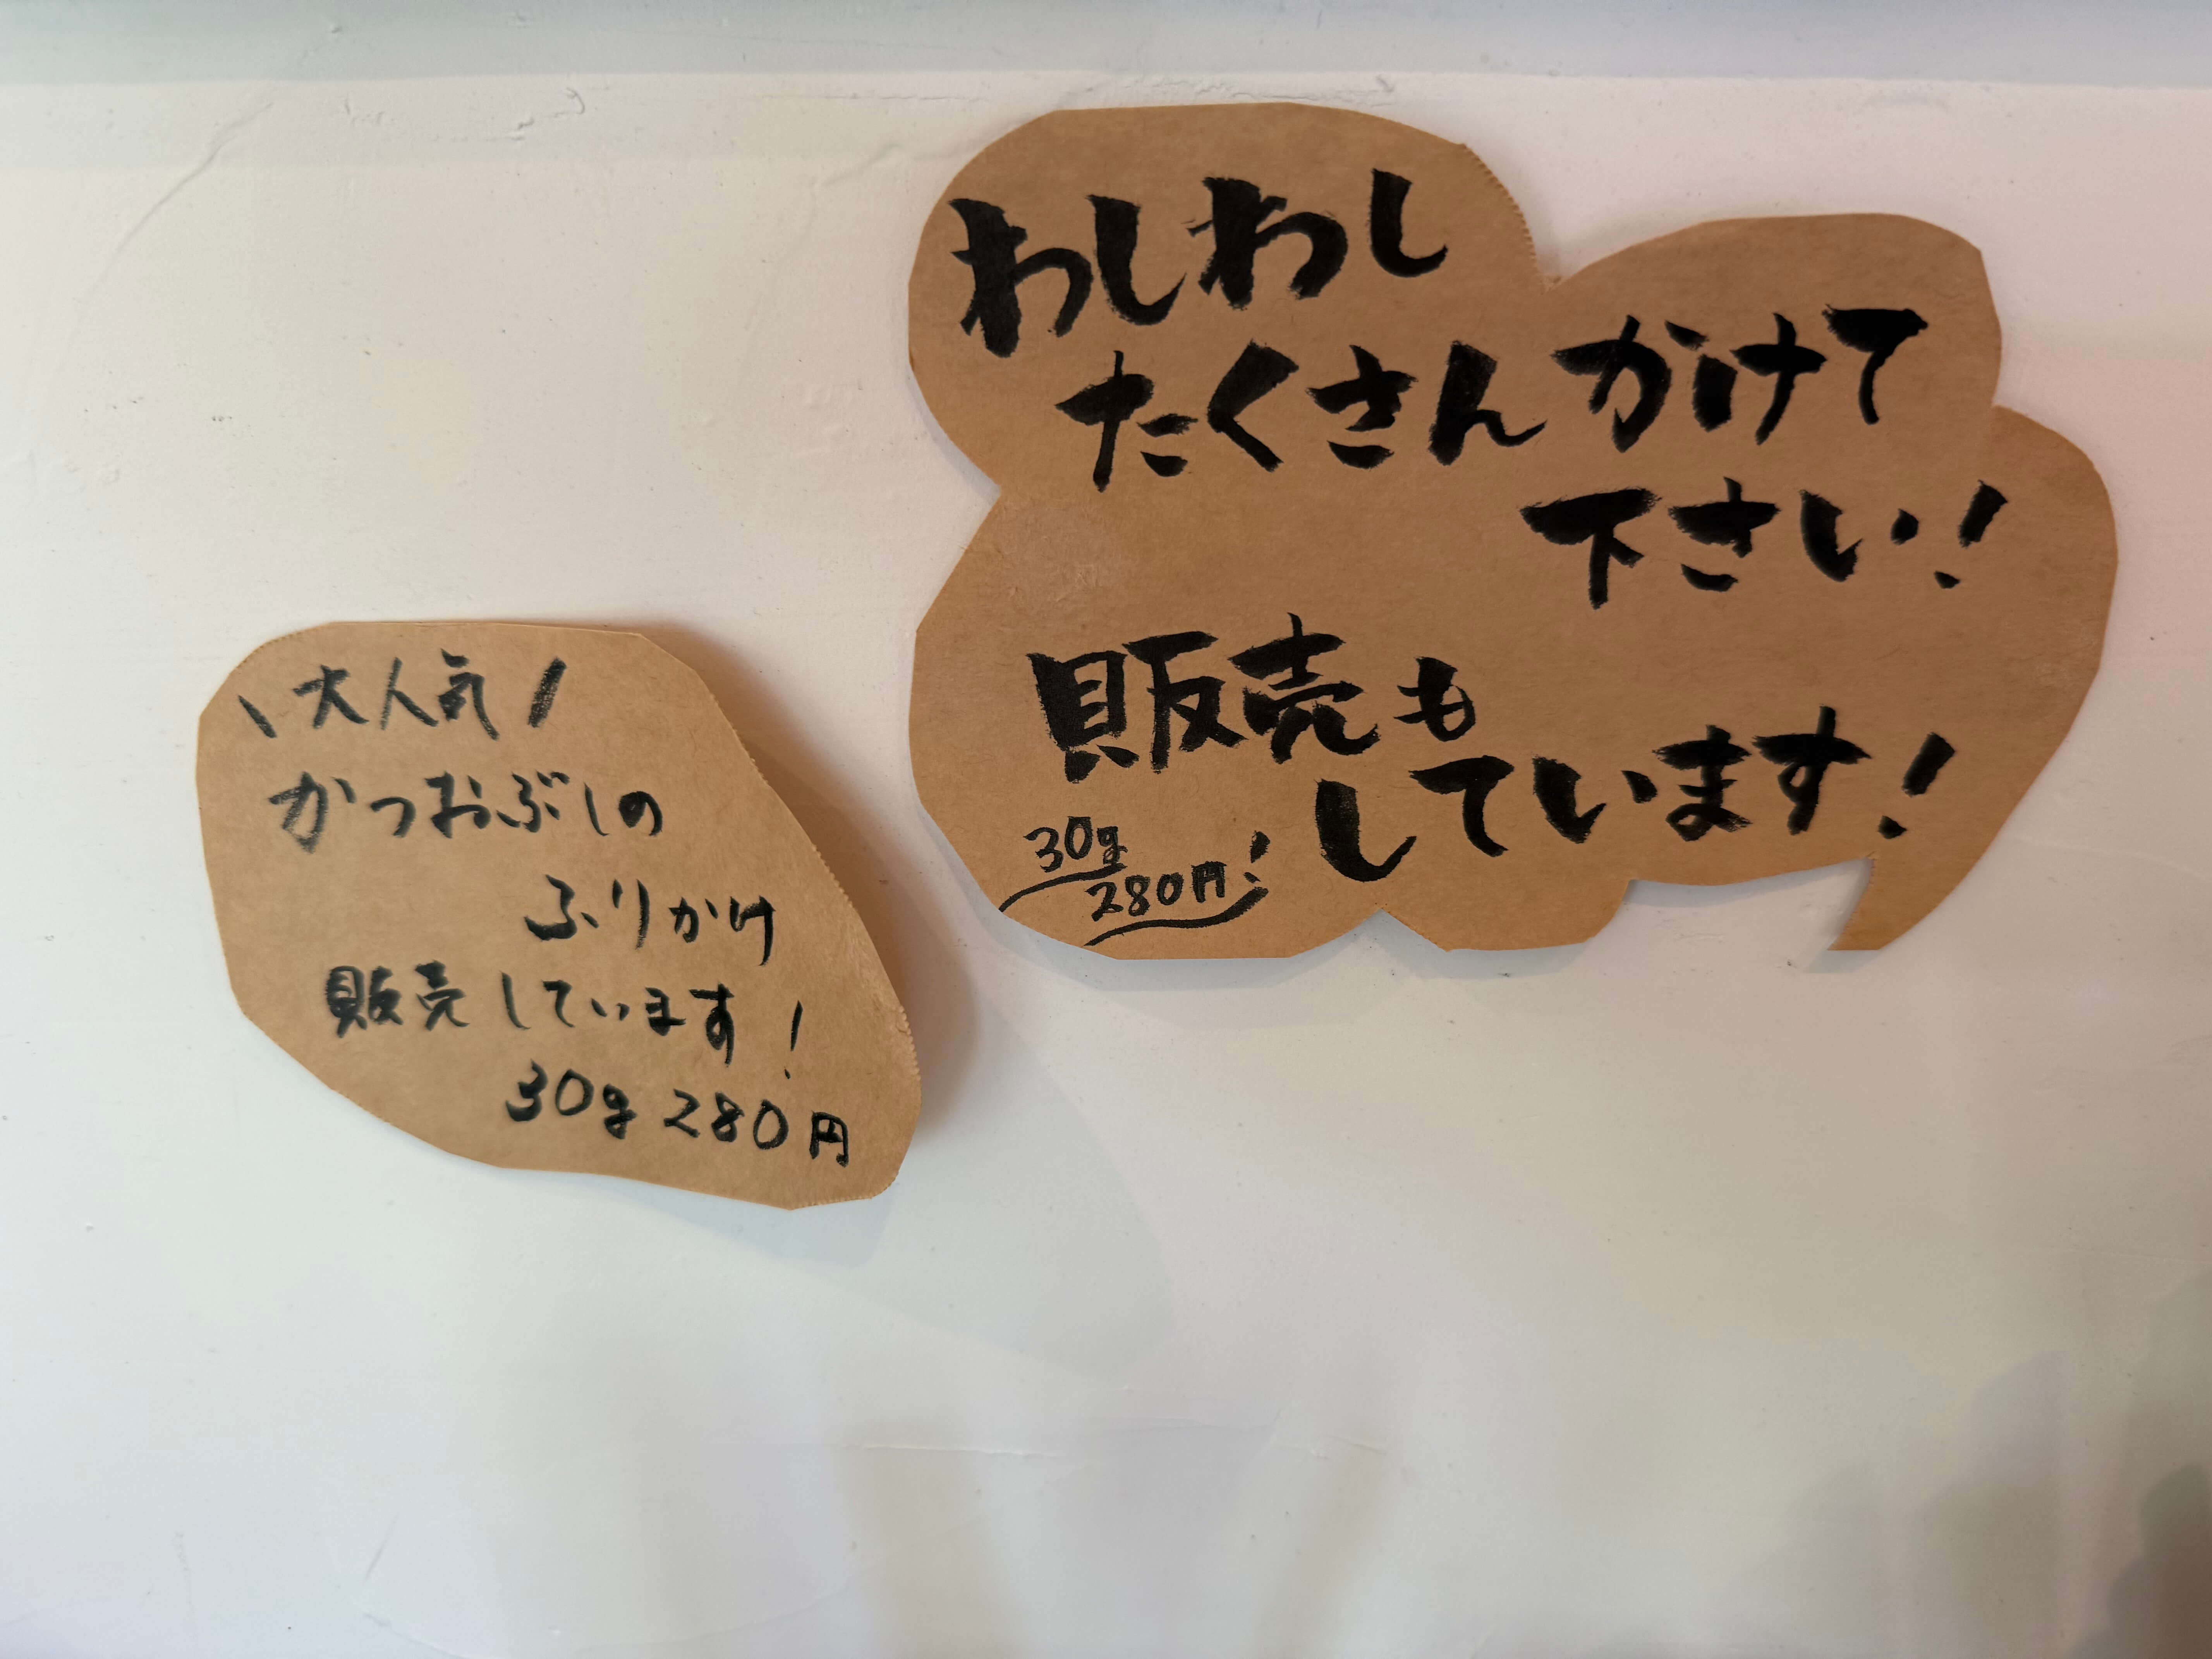 \大人気/
かつおぶしの
ふりかけ
販売しています!
30g 280円
わしわし
たくさんかけて
下さい!
販売も
しています!
30g
280円!